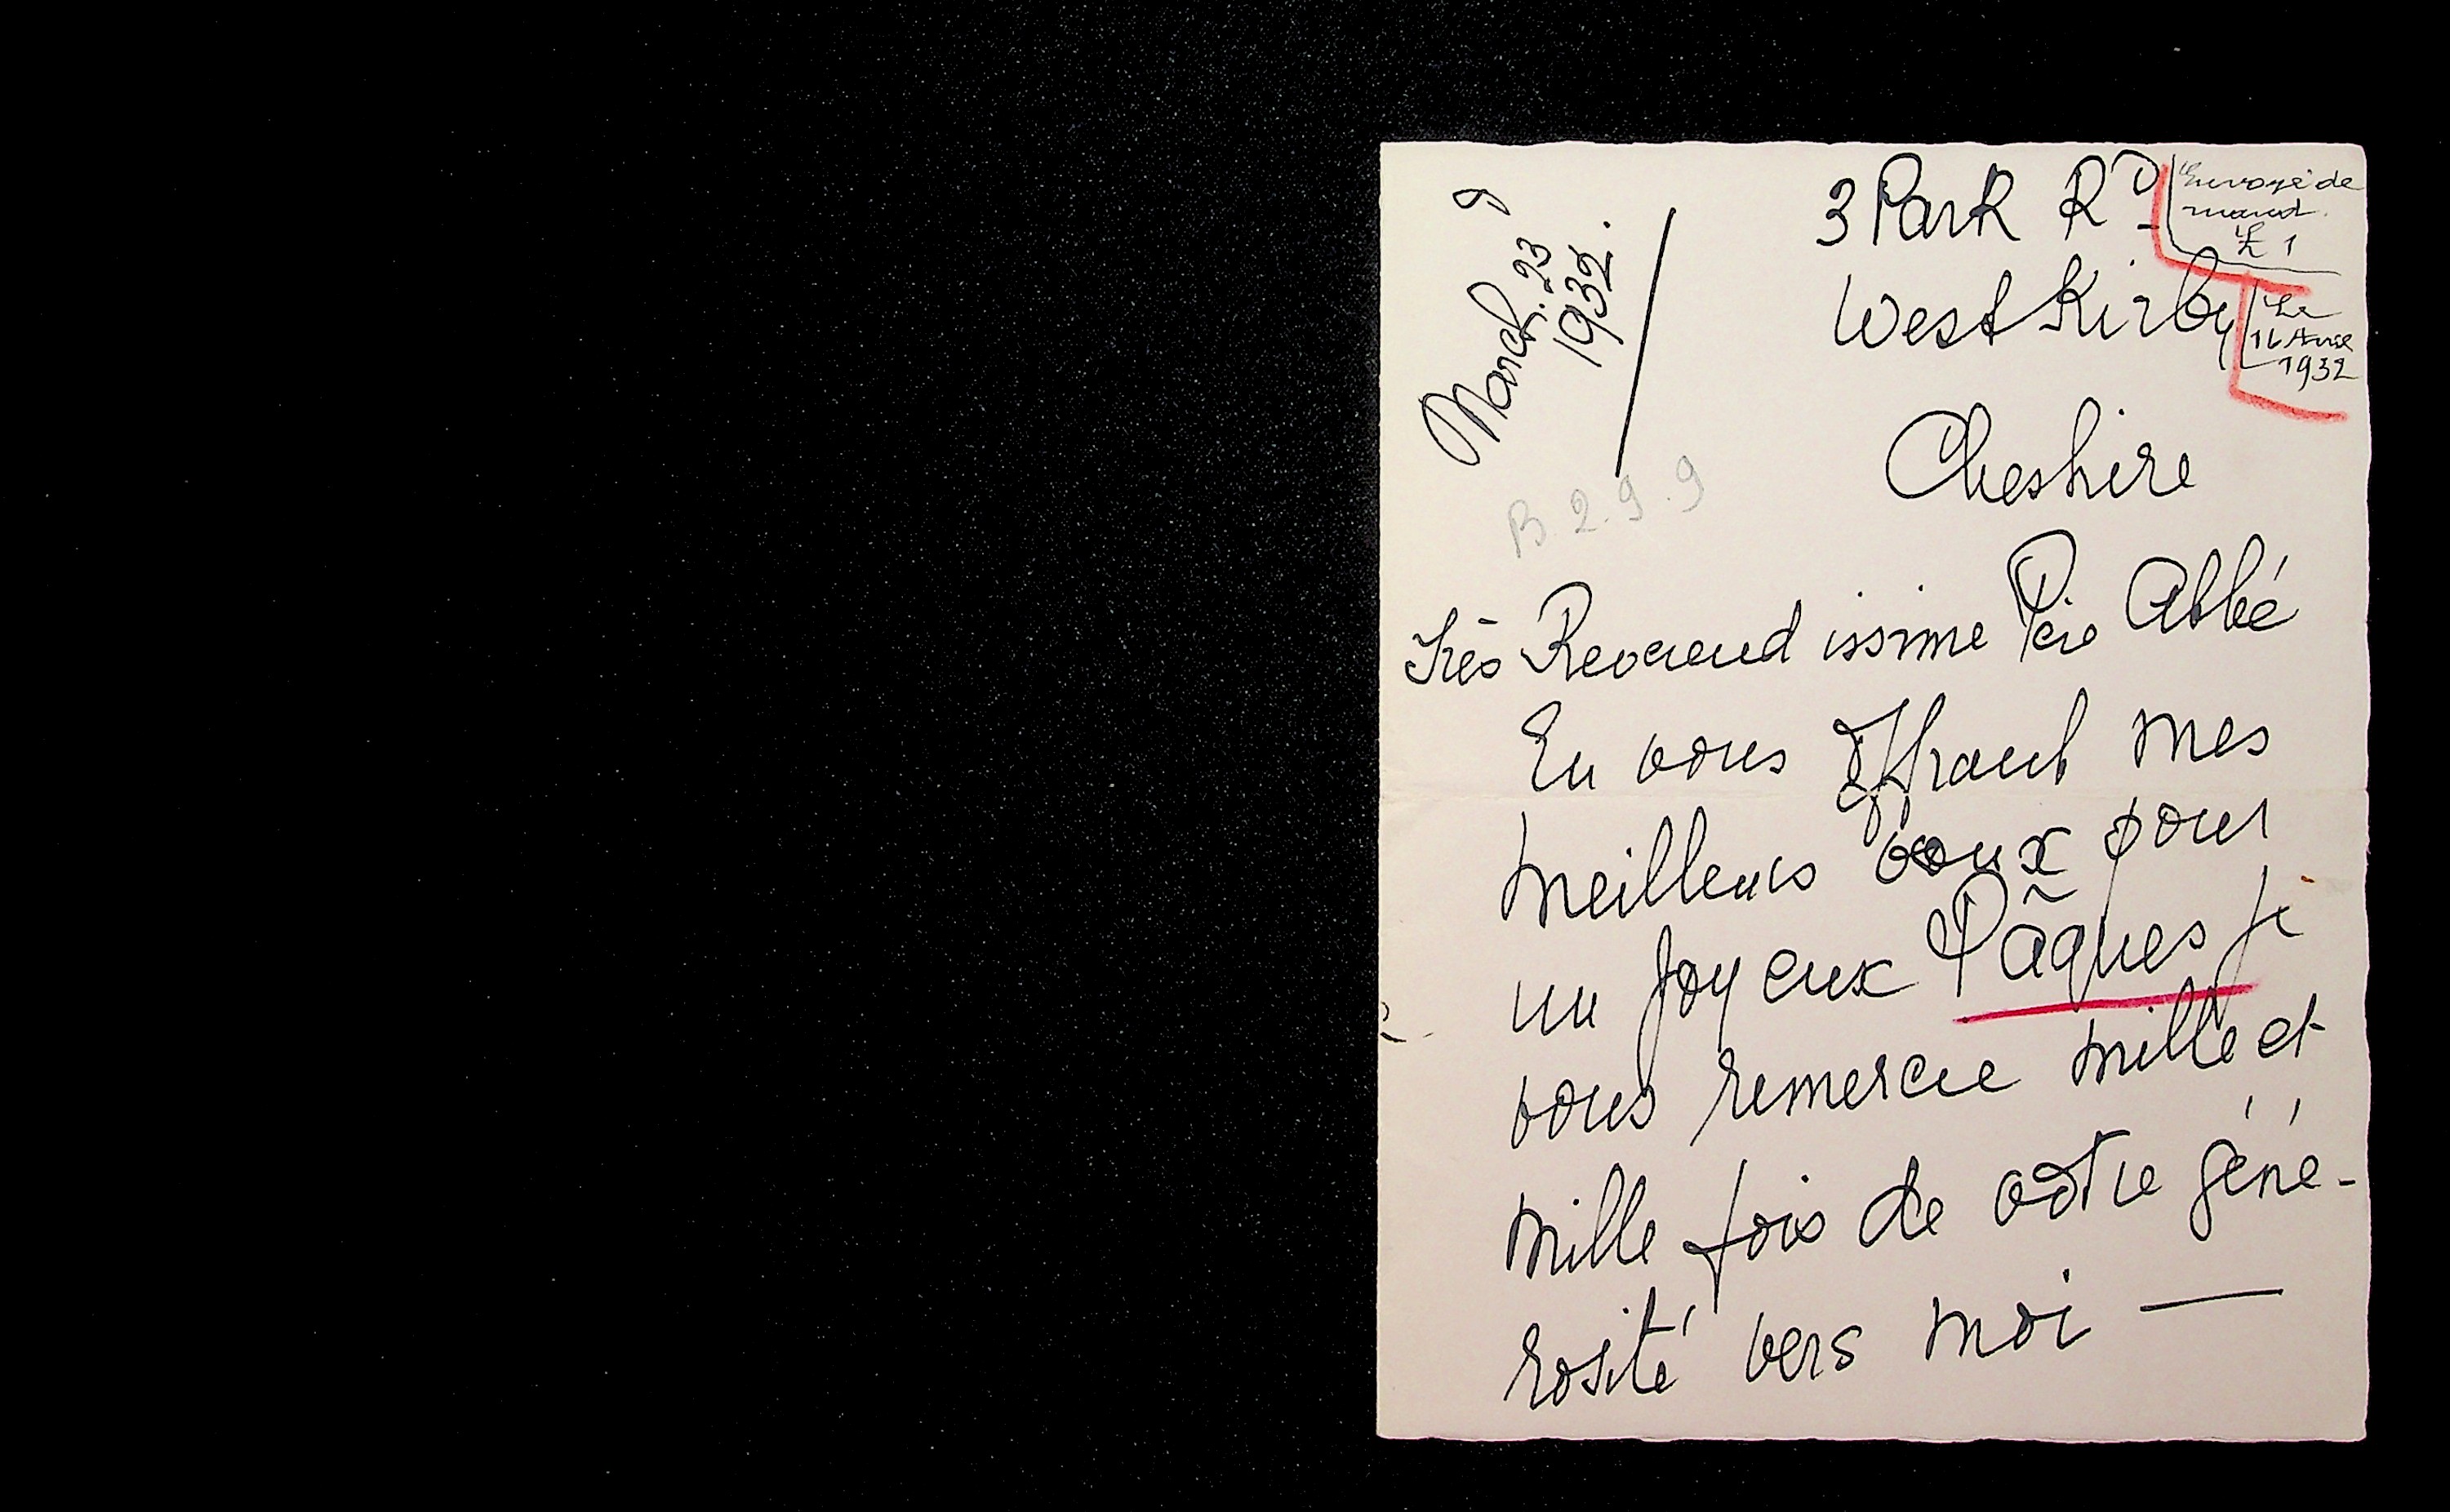 March. 23
1932.
3 Park Rd
West Kirby
Cheshire
Envoyé de
mand.
£ 1
Le
16 Avril
1932
B. 299
Très Reverend issime Père Abbé
En vous offrant mes
meilleurs voeux pour
un joyeux Pâques je
vous remercie mille et
mille fois de votre géné-
rosité vers moi —